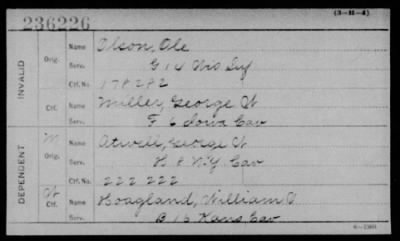 (3-H-4)
236226
INVALID
Orig. Name Olson, Ole
Serv. G 14 Wis Inf
Ctf. No. 178282
Ctf. Name Miller, George W
Serv. F 6 Iowa Cav
DEPENDENT
M Orig. Name Atwell, George W
Serv. H 8 N.Y. Cav
Ctf. No. 222 222
W Ctf. Name Hoagland, William O
Serv. B 15 Kans Cav